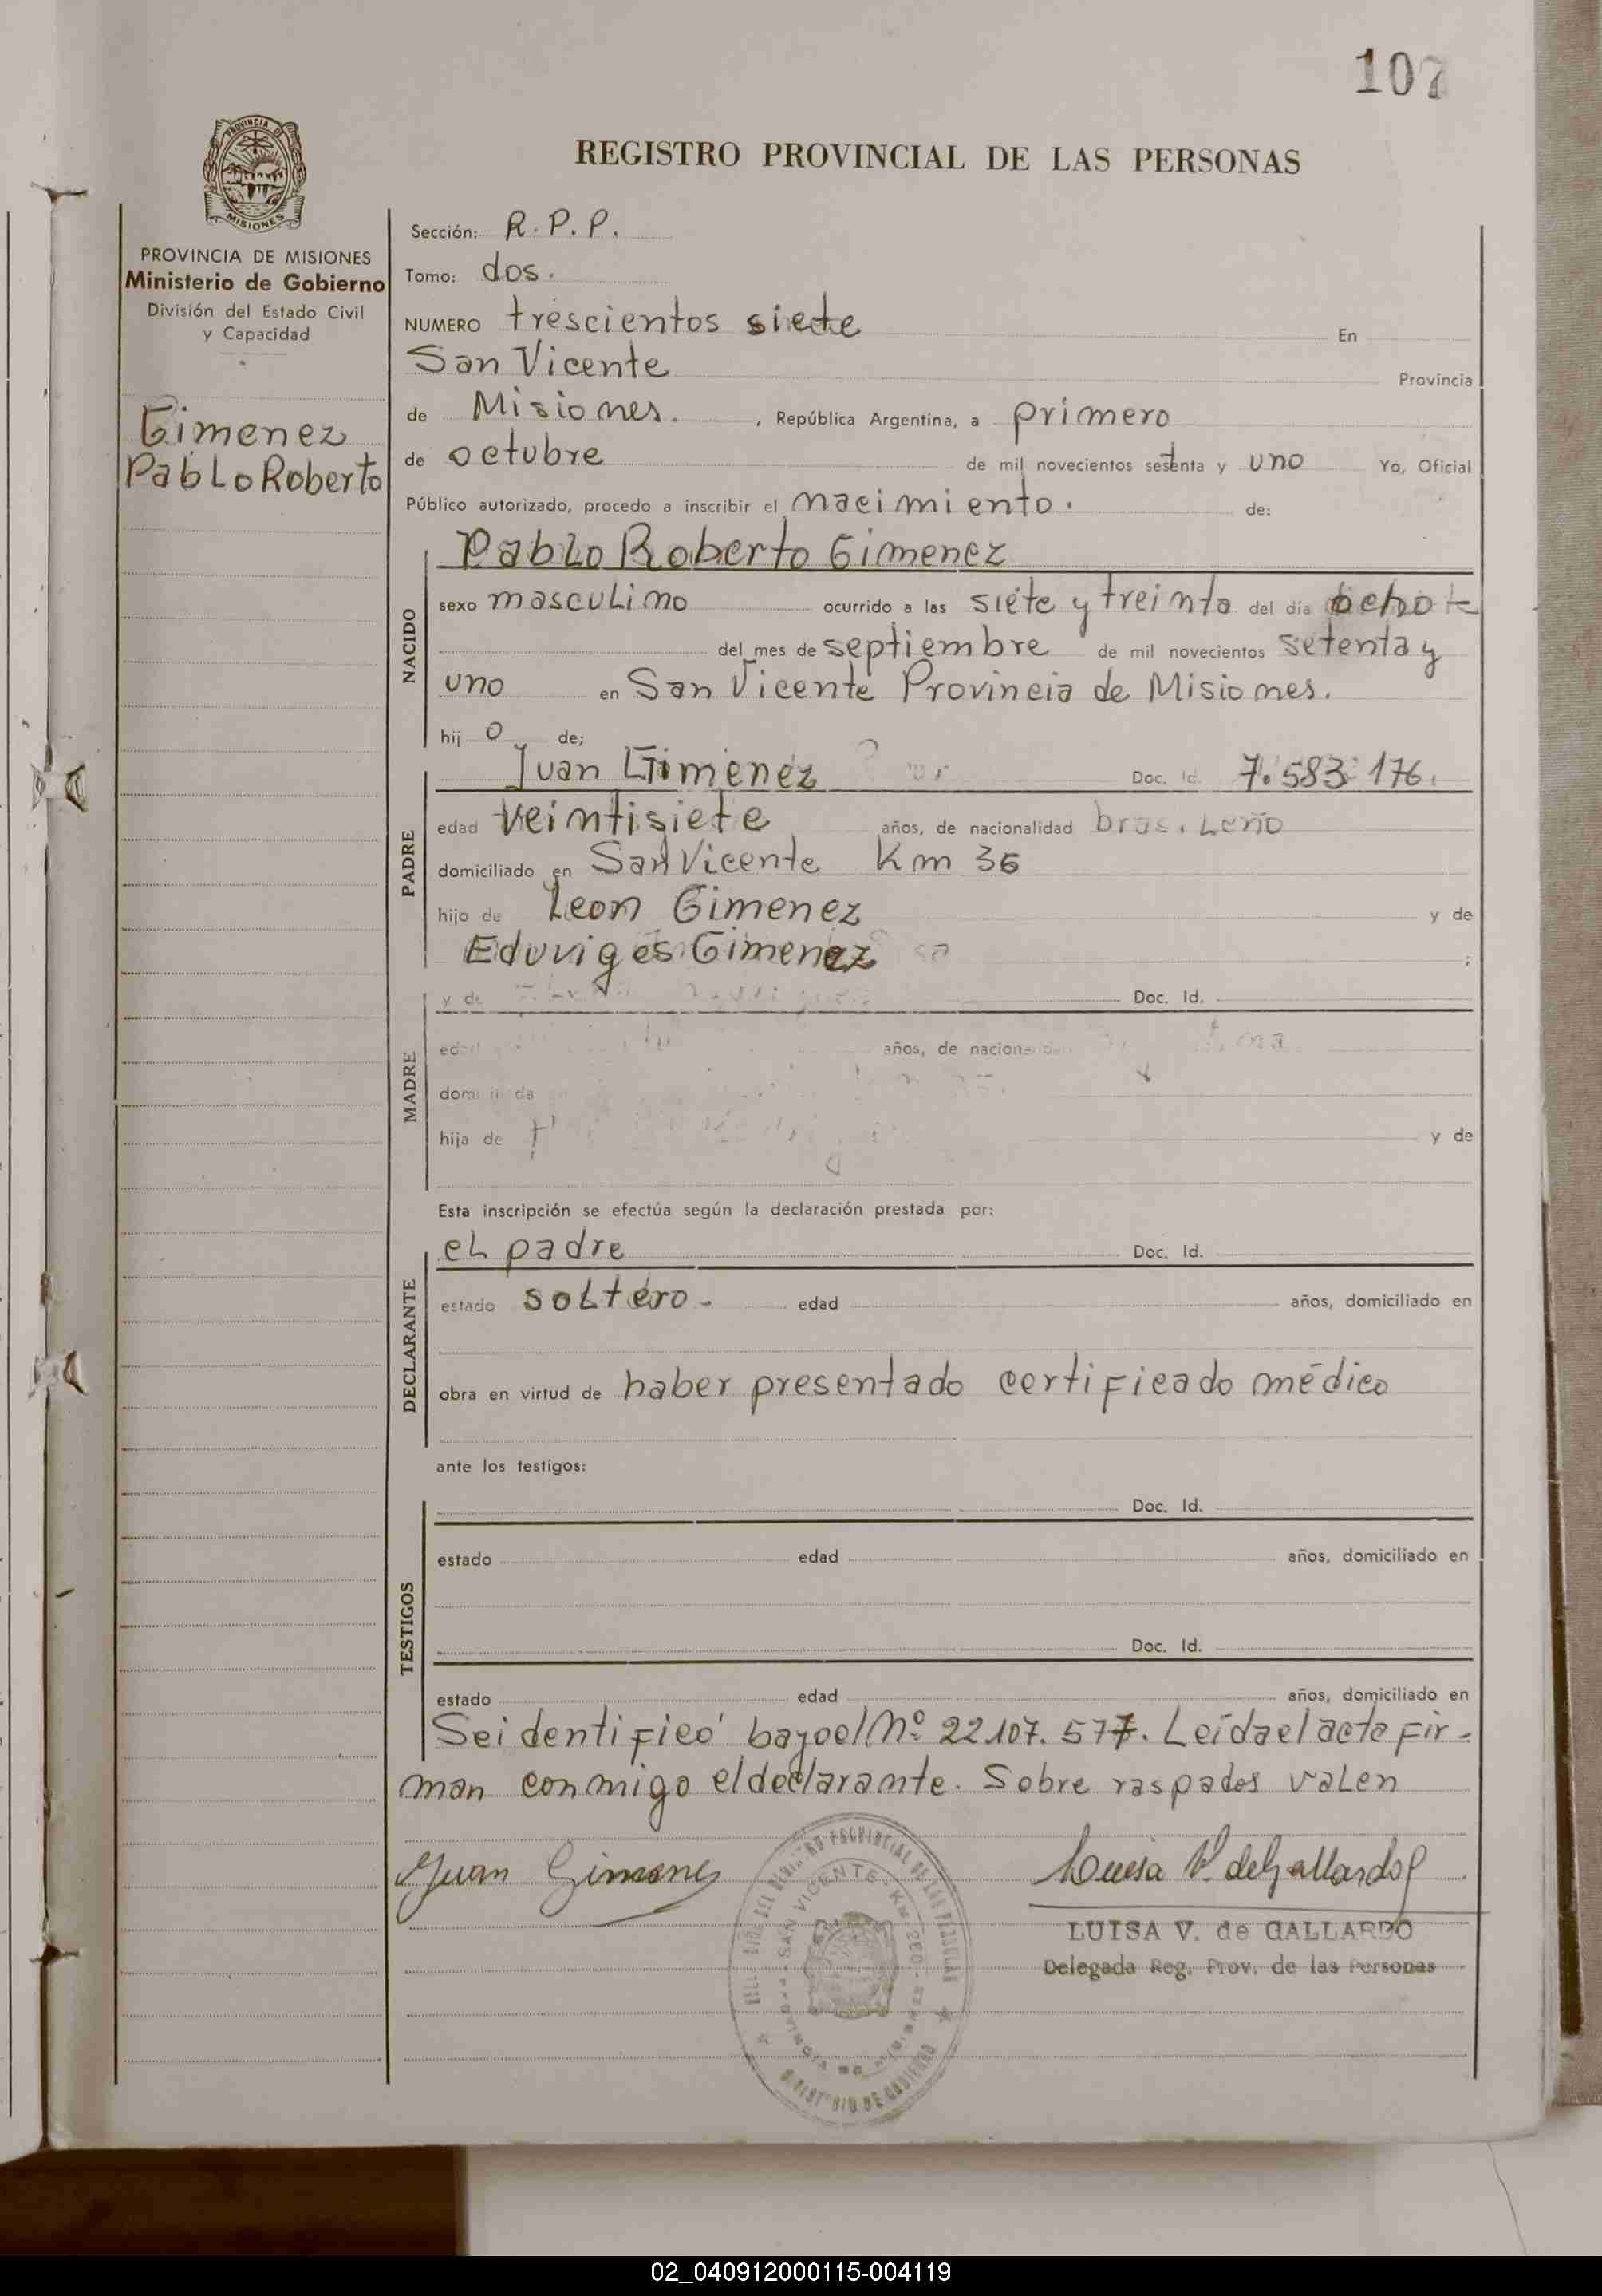 107
PROVINCIA DE
MISIONES
REGISTRO PROVINCIAL DE LAS PERSONAS
PROVINCIA DE MISIONES
Ministerio de Gobierno
División del Estado Civil
y Capacidad
Gimenez
Pablo Roberto
Sección: R. P. P.
Tomo: dos.
NUMERO trescientos siete En
San Vicente Provincia
de Misiones. , República Argentina, a primero
de octubre de mil novecientos setenta y uno Yo, Oficial
Público autorizado, procedo a inscribir el nacimiento. de:
NACIDO
Pablo Roberto Gimenez
sexo masculino ocurrido a las siete y treinta del día ocho
del mes de septiembre de mil novecientos setenta y
uno en San Vicente Provincia de Misiones.
hij o de;
PADRE
Juan Gimenez Doc. Id. 7.583.176.
edad veintisiete años, de nacionalidad brasileño
domiciliado en San Vicente Km 36
hijo de Leon Gimenez y de
Eduviges Gimenez ;
MADRE
y de Doc. Id.
edad años, de
hija de y de
Esta inscripción se efectúa según la declaración prestada por:
DECLARANTE
el padre Doc. Id.
estado soltero. edad años, domiciliado en
obra en virtud de haber presentado certificado médico
ante los testigos:
TESTIGOS
Doc. Id.
estado edad años, domiciliado en
Doc. Id.
estado edad años, domiciliado en
Se identificó bajo el Nº 22.107.577. Leída el acta fir-
man conmigo el declarante. Sobre raspados valen
Juan Gimenes
Luisa V. de Gallardo
LUISA V. de GALLARDO
Delegada Reg. Prov. de las Personas
SAN VICENTE - KM. 260
MINISTERIO DE GOBIERNO
02_040912000115-004119